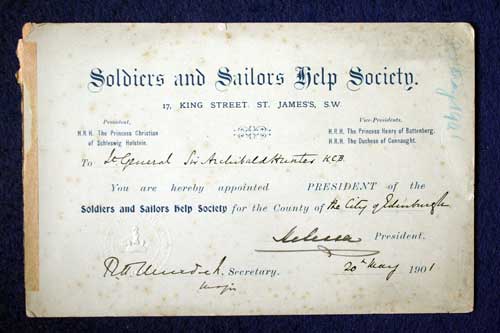 Soldiers and Sailors Help Society.
17, KING STREET, ST. JAMES'S, S.W.
President,
H.R.H. The Princess Christian
of Schleswig Holstein.
Vice-Presidents.
H.R.H. The Princess Henry of Battenberg.
H.R.H. The Duchess of Connaught.
To Lt General Sir Archibald Hunter K.C.B.
You are hereby appointed PRESIDENT of the
Soldiers and Sailors Help Society for the County of the City of Edinburgh
Helena President.
Secretary.
Major
20th May 1901